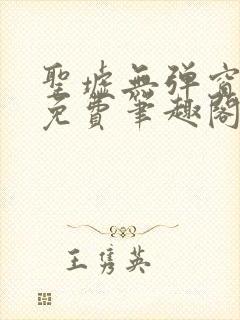 聖墟無弹窗
免費筆趣閣
王隽英